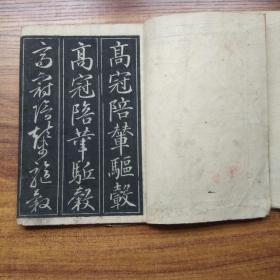 高冠陪輦驅轂
高冠陪輦駈轂
高冠陪輦驅轂